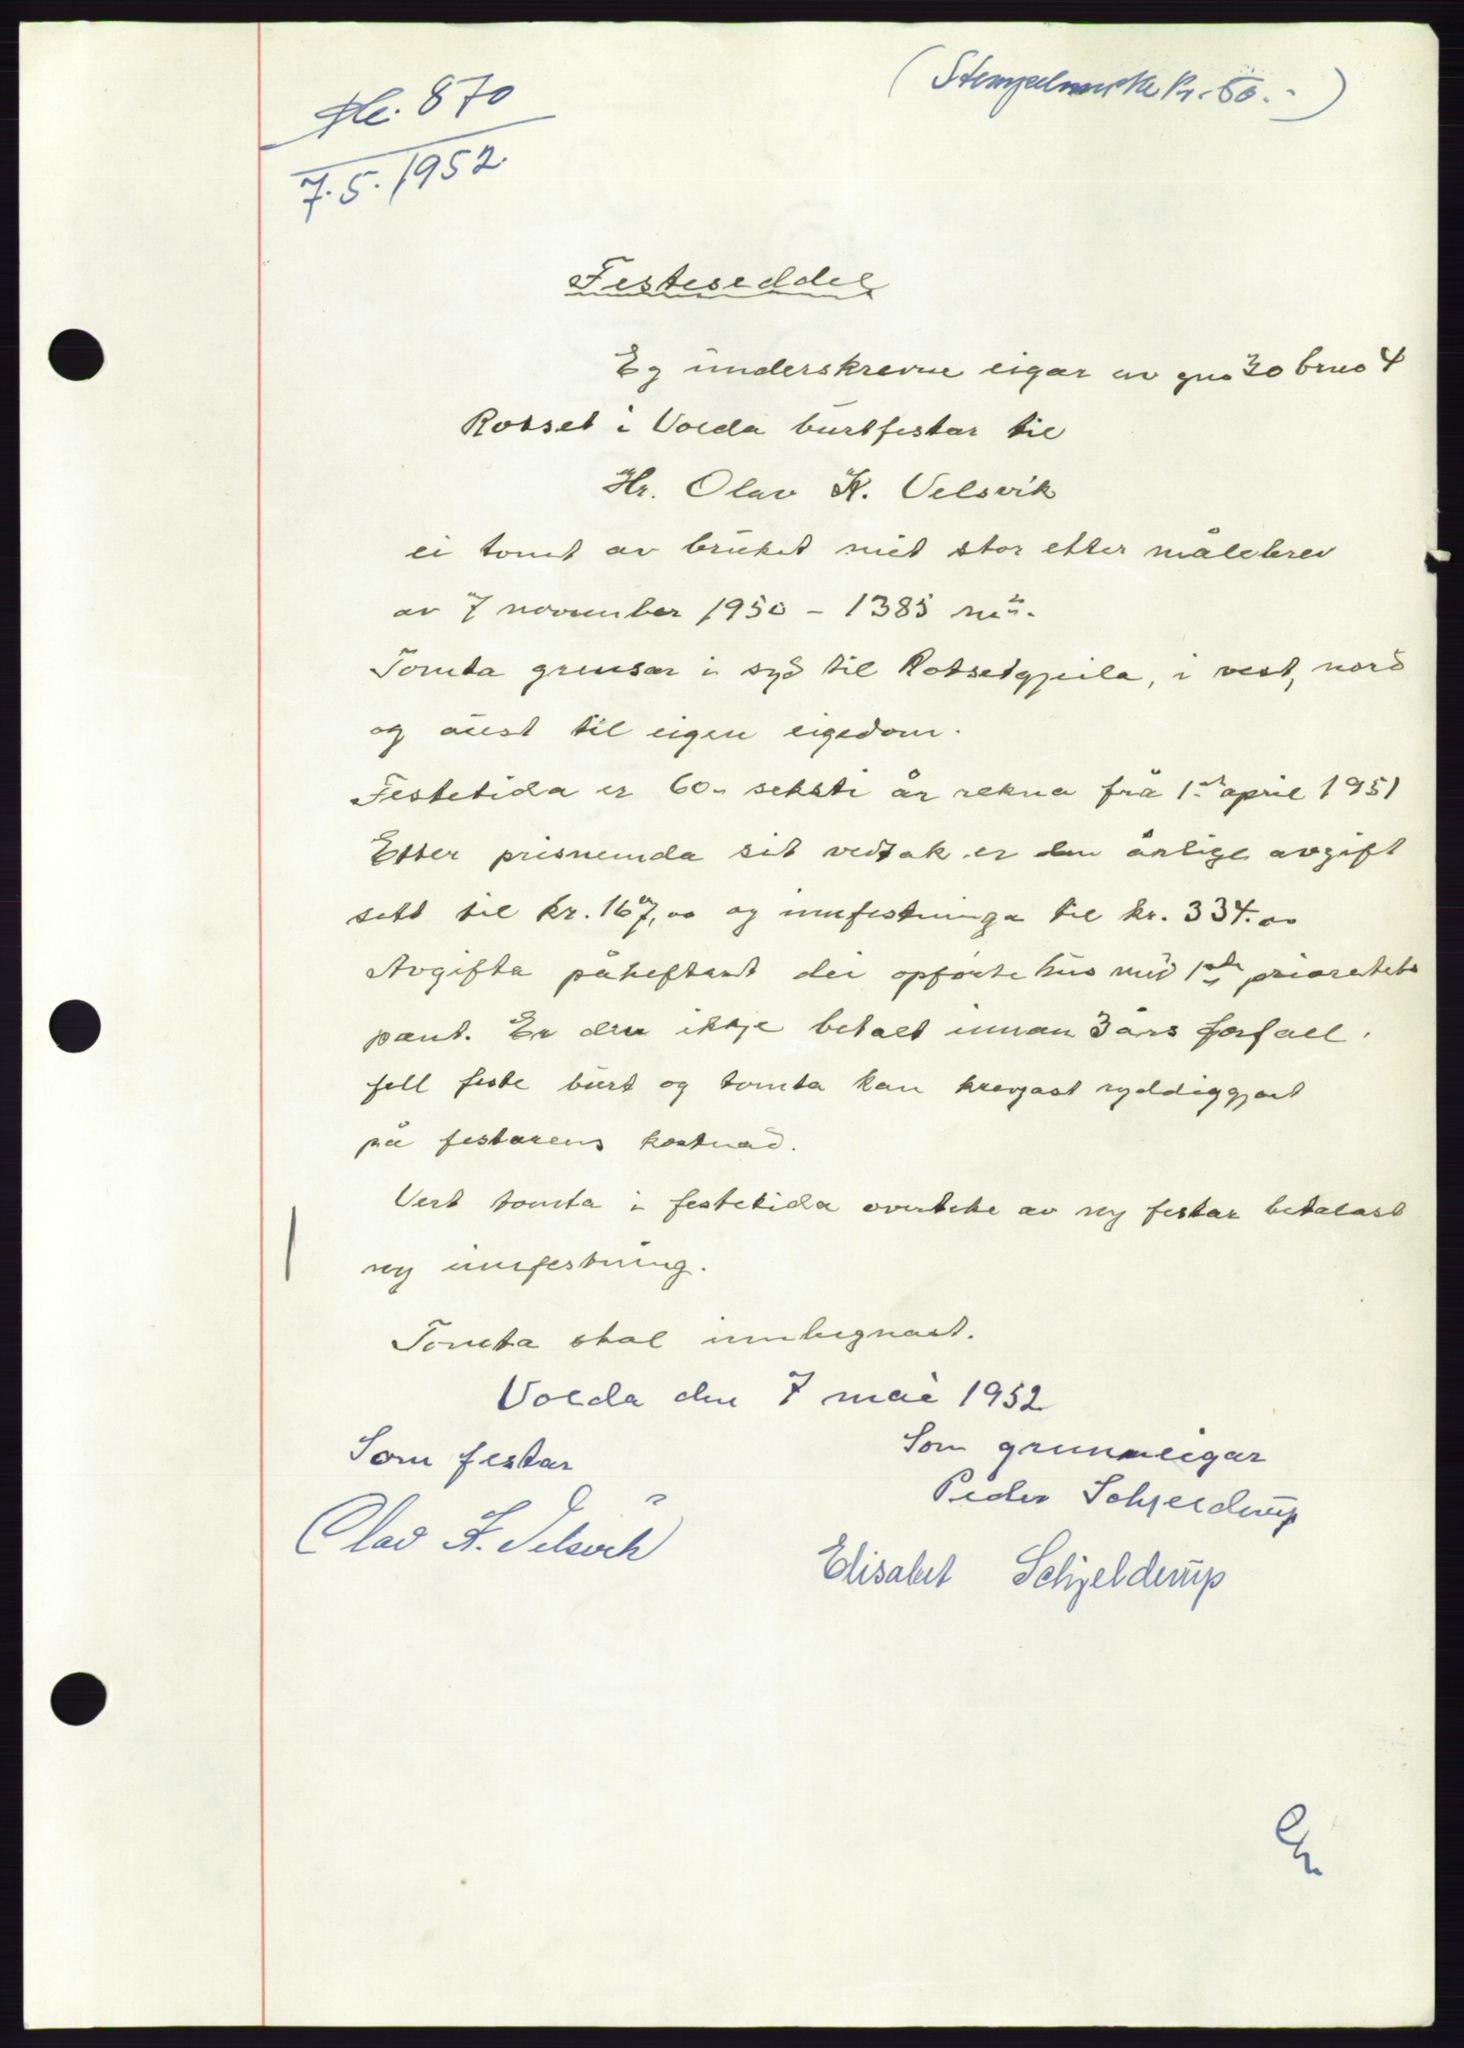 (Stempelmerke kr. 50.-)
870
7.5.1952.
Festeseddel
Eg underskrevne eigar av gno 30 bruo 4
Rotset i Volda burtfestar til
Hr. Olav K. Velsvik
ei tomt av bruket mit stor etter målebrev
av 7 november 1950 – 1385 m².
Tomta grensar i syd til Rotsetgjeila, i vest, nord
og aust til eigen eigedom.
Festetida er 60 - seksti år rekna frå 1st april 1951
Etter prisnemda sit vedtak er den årlige avgift
sett til kr. 167,00 og innfestninga til kr. 334.00
Avgifta påheftast dei opførte hus med 1ste prioretets
pant. Er den ikkje betalt innan 3 års forfall.
fell feste burt og tomta kan krevjast ryddiggjort
på festarens kostnad.
Vert tomta i festetida overteke av ny festar betalast
ny innfestning.
Tomta skal innhegnast.
Volda den 7 mai 1952
Som festar
Som grunneigar
Peder Schjelderup
Olav K. Velsvik
Elisabet Schjelderup